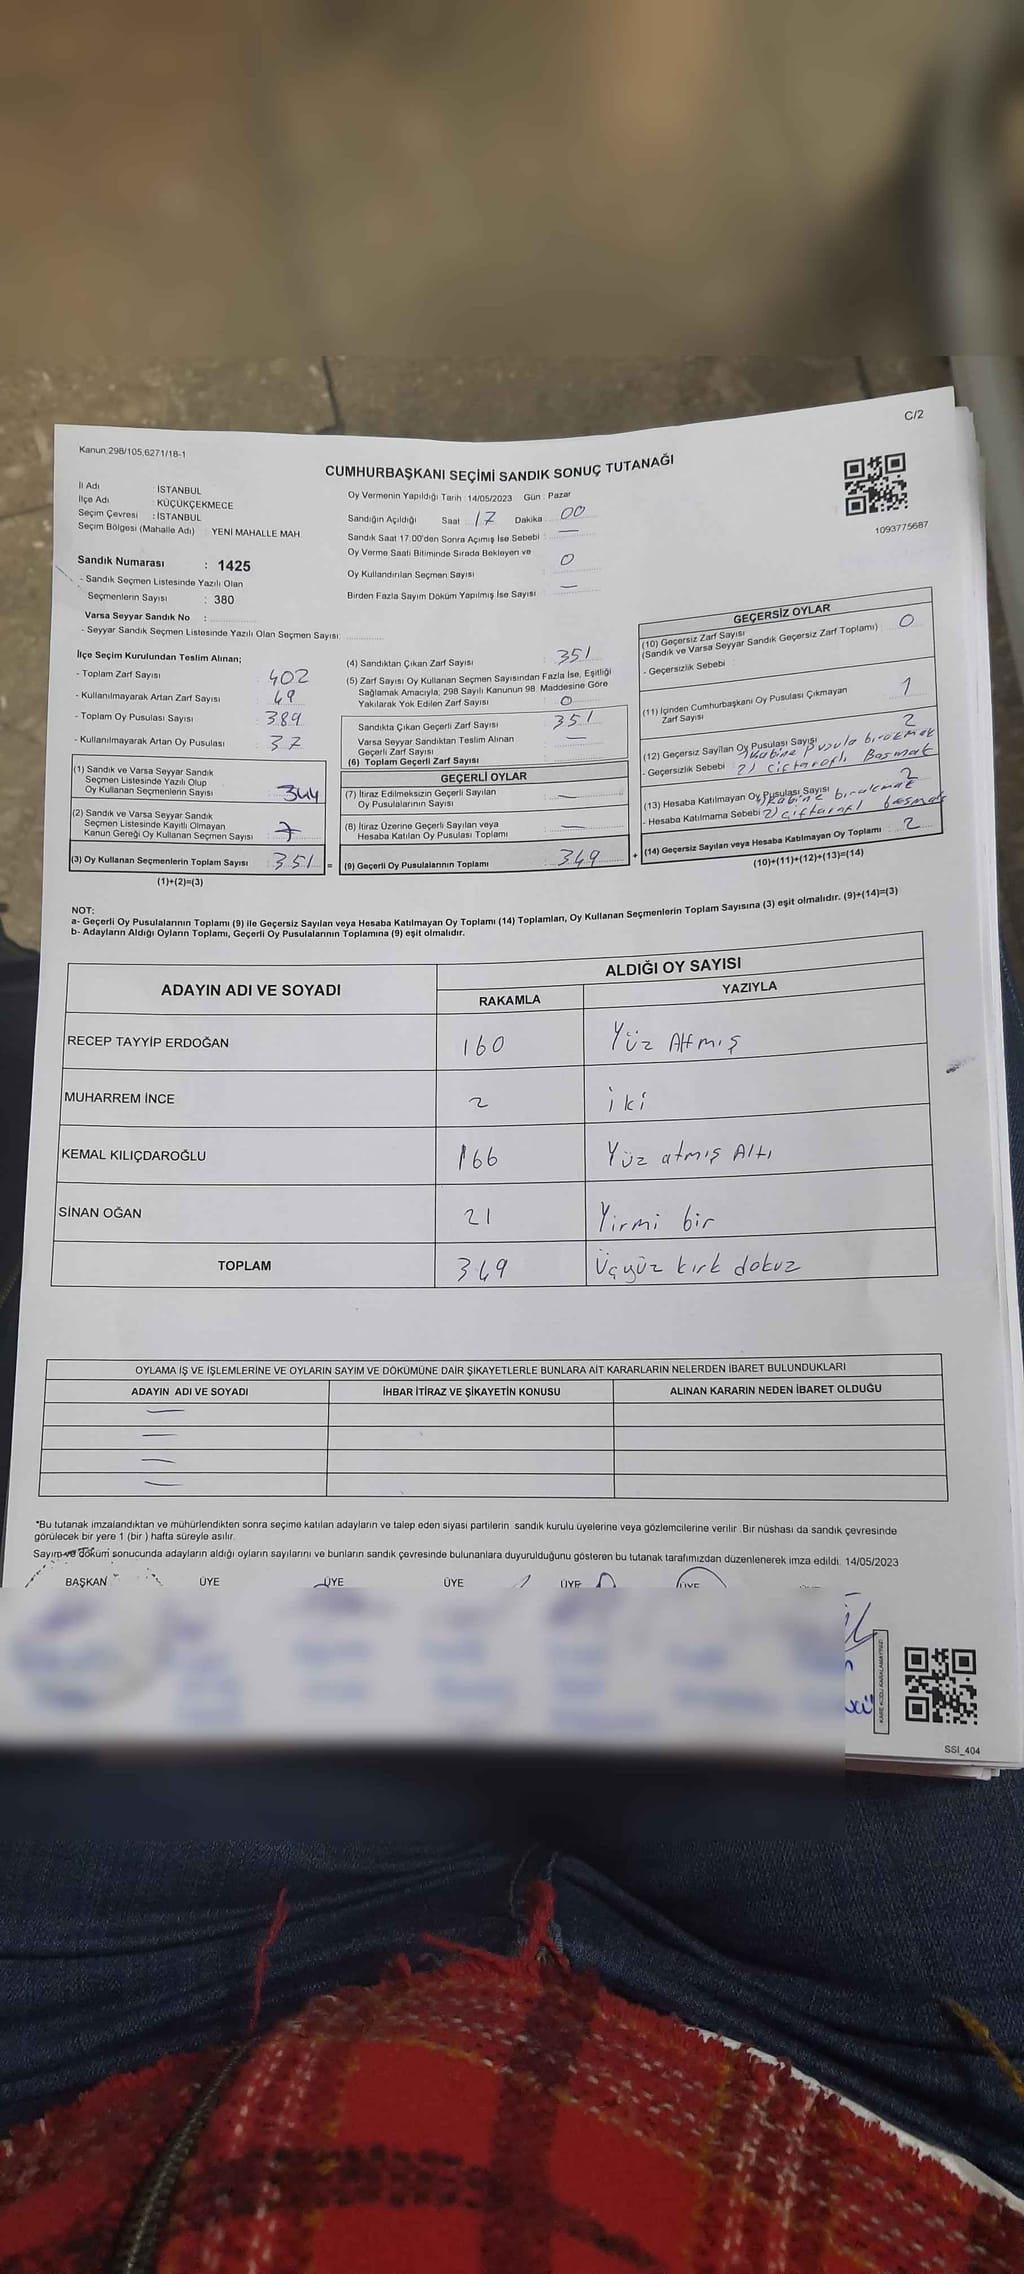 C/2
Kanun:298/105,6271/18-1
CUMHURBAŞKANI SEÇİMİ SANDIK SONUÇ TUTANAĞI
İl Adı : İSTANBUL
İlçe Adı : KÜÇÜKÇEKMECE
Seçim Çevresi : İSTANBUL
Seçim Bölgesi (Mahalle Adı) : YENİ MAHALLE MAH.
Oy Vermenin Yapıldığı Tarih : 14/05/2023 Gün : Pazar
Sandığın Açıldığı Saat 17 Dakika 00
Sandık Saat 17:00'den Sonra Açımış İse Sebebi : —
Oy Verme Saati Bitiminde Sırada Bekleyen ve
Oy Kullandırılan Seçmen Sayısı : 0
Birden Fazla Sayım Döküm Yapılmış İse Sayısı : —
1093775687
Sandık Numarası : 1425
- Sandık Seçmen Listesinde Yazılı Olan
Seçmenlerin Sayısı : 380
Varsa Seyyar Sandık No :
- Seyyar Sandık Seçmen Listesinde Yazılı Olan Seçmen Sayısı:
İlçe Seçim Kurulundan Teslim Alınan;
- Toplam Zarf Sayısı : 402
- Kullanılmayarak Artan Zarf Sayısı : 49
- Toplam Oy Pusulası Sayısı : 389
- Kullanılmayarak Artan Oy Pusulası : 37
(1) Sandık ve Varsa Seyyar Sandık
Seçmen Listesinde Yazılı Olup
Oy Kullanan Seçmenlerin Sayısı : 344
(2) Sandık ve Varsa Seyyar Sandık
Seçmen Listesinde Kayıtlı Olmayan
Kanun Gereği Oy Kullanan Seçmen Sayısı : 7
(3) Oy Kullanan Seçmenlerin Toplam Sayısı : 351 =
(1)+(2)=(3)
(4) Sandıktan Çıkan Zarf Sayısı : 351
(5) Zarf Sayısı Oy Kullanan Seçmen Sayısından Fazla İse, Eşitliği
Sağlamak Amacıyla; 298 Sayılı Kanunun 98. Maddesine Göre
Yakılarak Yok Edilen Zarf Sayısı : 0
Sandıkta Çıkan Geçerli Zarf Sayısı : 351
Varsa Seyyar Sandıktan Teslim Alınan
Geçerli Zarf Sayısı : —
(6) Toplam Geçerli Zarf Sayısı
GEÇERLİ OYLAR
(7) İtiraz Edilmeksizin Geçerli Sayılan
Oy Pusulalarının Sayısı : —
(8) İtiraz Üzerine Geçerli Sayılan veya
Hesaba Katılan Oy Pusulası Toplamı : —
(9) Geçerli Oy Pusulalarının Toplamı : 349 +
GEÇERSİZ OYLAR
(10) Geçersiz Zarf Sayısı
(Sandık ve Varsa Seyyar Sandık Geçersiz Zarf Toplamı) : 0
- Geçersizlik Sebebi :
(11) İçinden Cumhurbaşkanı Oy Pusulası Çıkmayan
Zarf Sayısı : 1
(12) Geçersiz Sayılan Oy Pusulası Sayısı : 2
- Geçersizlik Sebebi : 1) Kabine Pusula bırakmak
2) Çiftaraflı Basmak
(13) Hesaba Katılmayan Oy Pusulası Sayısı : 2
- Hesaba Katılmama Sebebi : 1) Kabine bırakmak
2) Çiftarafl basmak
(14) Geçersiz Sayılan veya Hesaba Katılmayan Oy Toplamı : 2
(10)+(11)+(12)+(13)=(14)
NOT:
a- Geçerli Oy Pusulalarının Toplamı (9) ile Geçersiz Sayılan veya Hesaba Katılmayan Oy Toplamı (14) Toplamları, Oy Kullanan Seçmenlerin Toplam Sayısına (3) eşit olmalıdır. (9)+(14)=(3)
b- Adayların Aldığı Oyların Toplamı, Geçerli Oy Pusulalarının Toplamına (9) eşit olmalıdır.
ADAYIN ADI VE SOYADI ALDIĞI OY SAYISI
RAKAMLA YAZIYLA
RECEP TAYYİP ERDOĞAN 160 Yüz Altmış
MUHARREM İNCE 2 iki
KEMAL KILIÇDAROĞLU 166 Yüz atmış Altı
SİNAN OĞAN 21 Yirmi bir
TOPLAM 349 Üçyüz kırk dokuz
OYLAMA İŞ VE İŞLEMLERİNE VE OYLARIN SAYIM VE DÖKÜMÜNE DAİR ŞİKAYETLERLE BUNLARA AİT KARARLARIN NELERDEN İBARET BULUNDUKLARI
ADAYIN ADI VE SOYADI İHBAR İTİRAZ VE ŞİKAYETİN KONUSU ALINAN KARARIN NEDEN İBARET OLDUĞU
—
—
—
—
*Bu tutanak imzalandıktan ve mühürlendikten sonra seçime katılan adayların ve talep eden siyasi partilerin sandık kurulu üyelerine veya gözlemcilerine verilir. Bir nüshası da sandık çevresinde
görülecek bir yere 1 (bir) hafta süreyle asılır.
Sayım ve döküm sonucunda adayların aldığı oyların sayılarını ve bunların sandık çevresinde bulunanlara duyurulduğunu gösteren bu tutanak tarafımızdan düzenlenerek imza edildi. 14/05/2023
BAŞKAN ÜYE ÜYE ÜYE ÜYE ÜYE
SSI_404